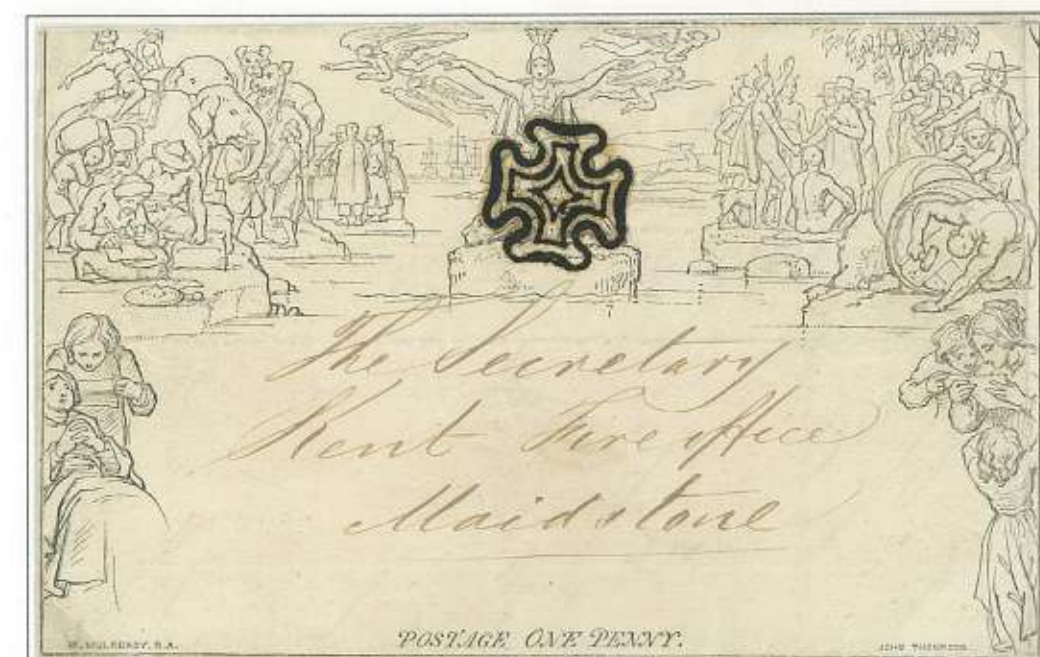 The Secretary
Kent Fire office
Maidstone
W. MULREADY, R.A.
POSTAGE ONE PENNY.
JOHN THOMPSON